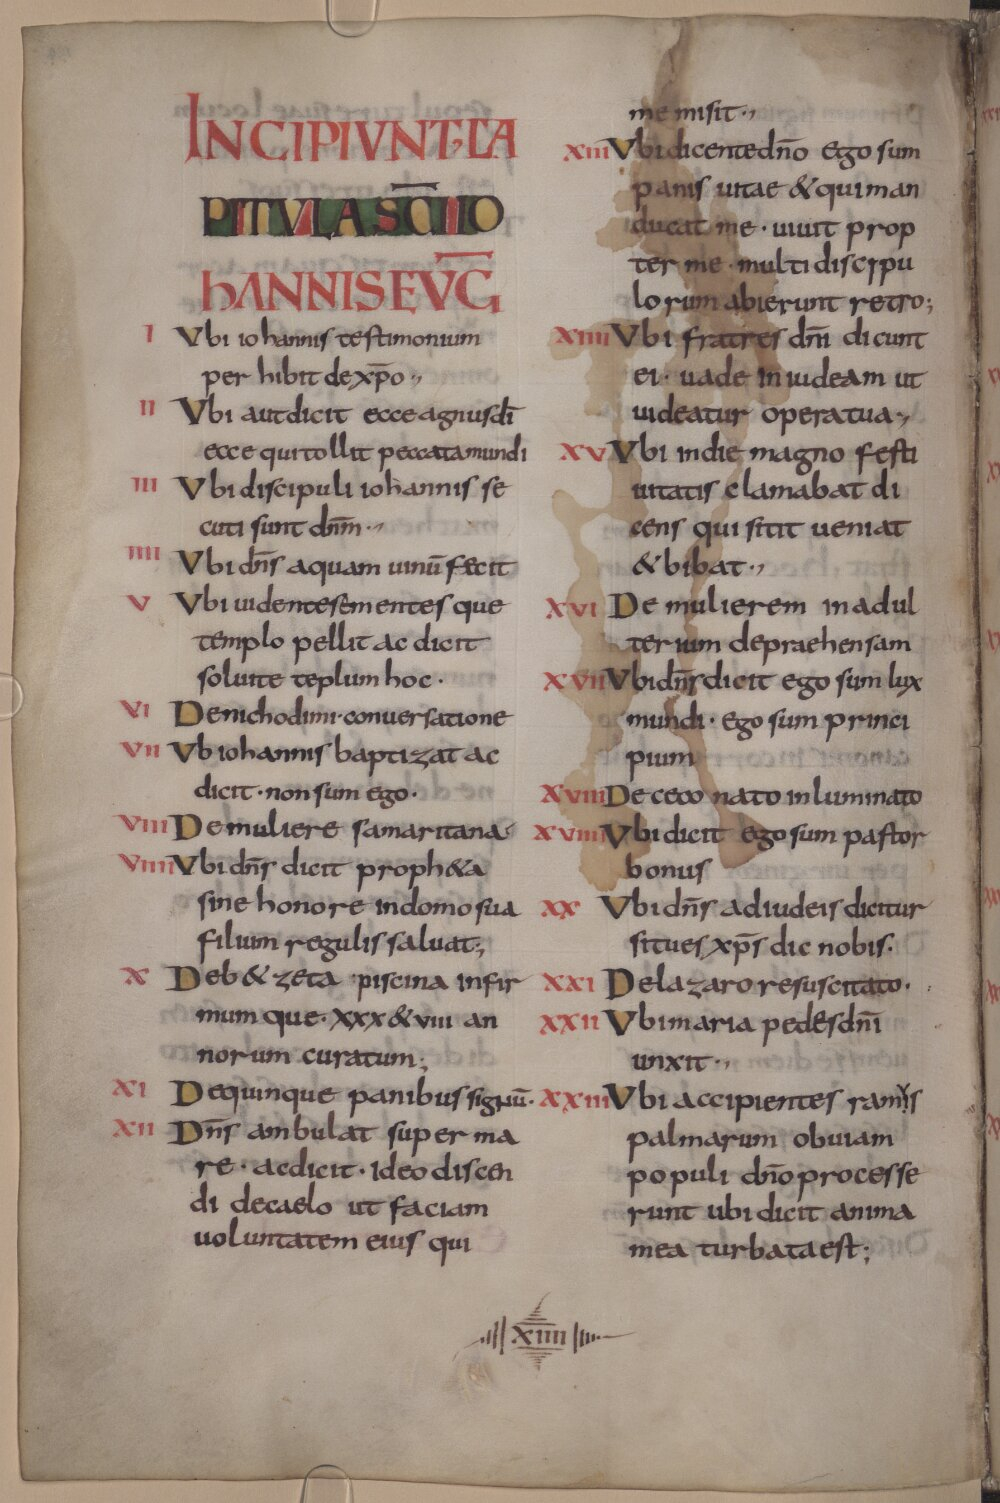 INCIPIVNT CA
PITVLA SC̅I IO
hANNIS EVG̅
I Vbi iohannis testimonium
per hibit de xp̅o
II Vbi aut dicit ecce agnus dī
ecce qui tollit peccata mundi
III Vbi discipuli iohannis se
cuti sunt dn̅m
IIII Vbi dn̅s aquam uinū fecit
V Vbi uidentes ementes que
templo pellit ac dicit
soluite teplum hoc ·
VI De nichodimi · conuersatione
VII Vb iohannis baptizat ac
dicit · non sum ego ·
VIII De muliere samaritana
VIIII Vbi dn̅s dicit proph&a
sine honore in domo sua
filium regulis saluat;
X De b&zeta piscina infir
mum que · xxx & viii an
norum curatum;
XI De quinque panibus signū ·
XII Dn̅s ambulat super ma
re · ac dicit · ideo discen
di de caelo ut faciam
uoluntatem eius qui
me misit
XIII Vbi dicente dn̅o ego sum
panis uitae & qui man
ducat me · uiuit prop
ter me · multi discipu
lorum abierunt retro;
XIIII Vbi fratres dn̅i dicunt
ei · uade in iudeam ut
uideatur opera tua
XV Vbi in die magno festi
uitatis clamabat di
cens qui sitit ueniat
& bibat
XVI De mulierem in adul
terium depraehensam
XVII Vbi dn̅s dicit ego sum lux
mundi · ego sum princi
pium
XVIII De ceco nato inluminato
XVIIII Vbi dicit ego sum pastor
bonus
XX Vbi dn̅s ad iudeis dicitur
si tu es xp̅s dic nobis ·
XXI De lazaro resuscitato ·
XXII Vbi maria pedes dn̅i
unxit
XXIII Vbi accipientes ramis
palmarum obuiam
populi dn̅o processe
runt ubi dicit anima
mea turbata est;
XIIII